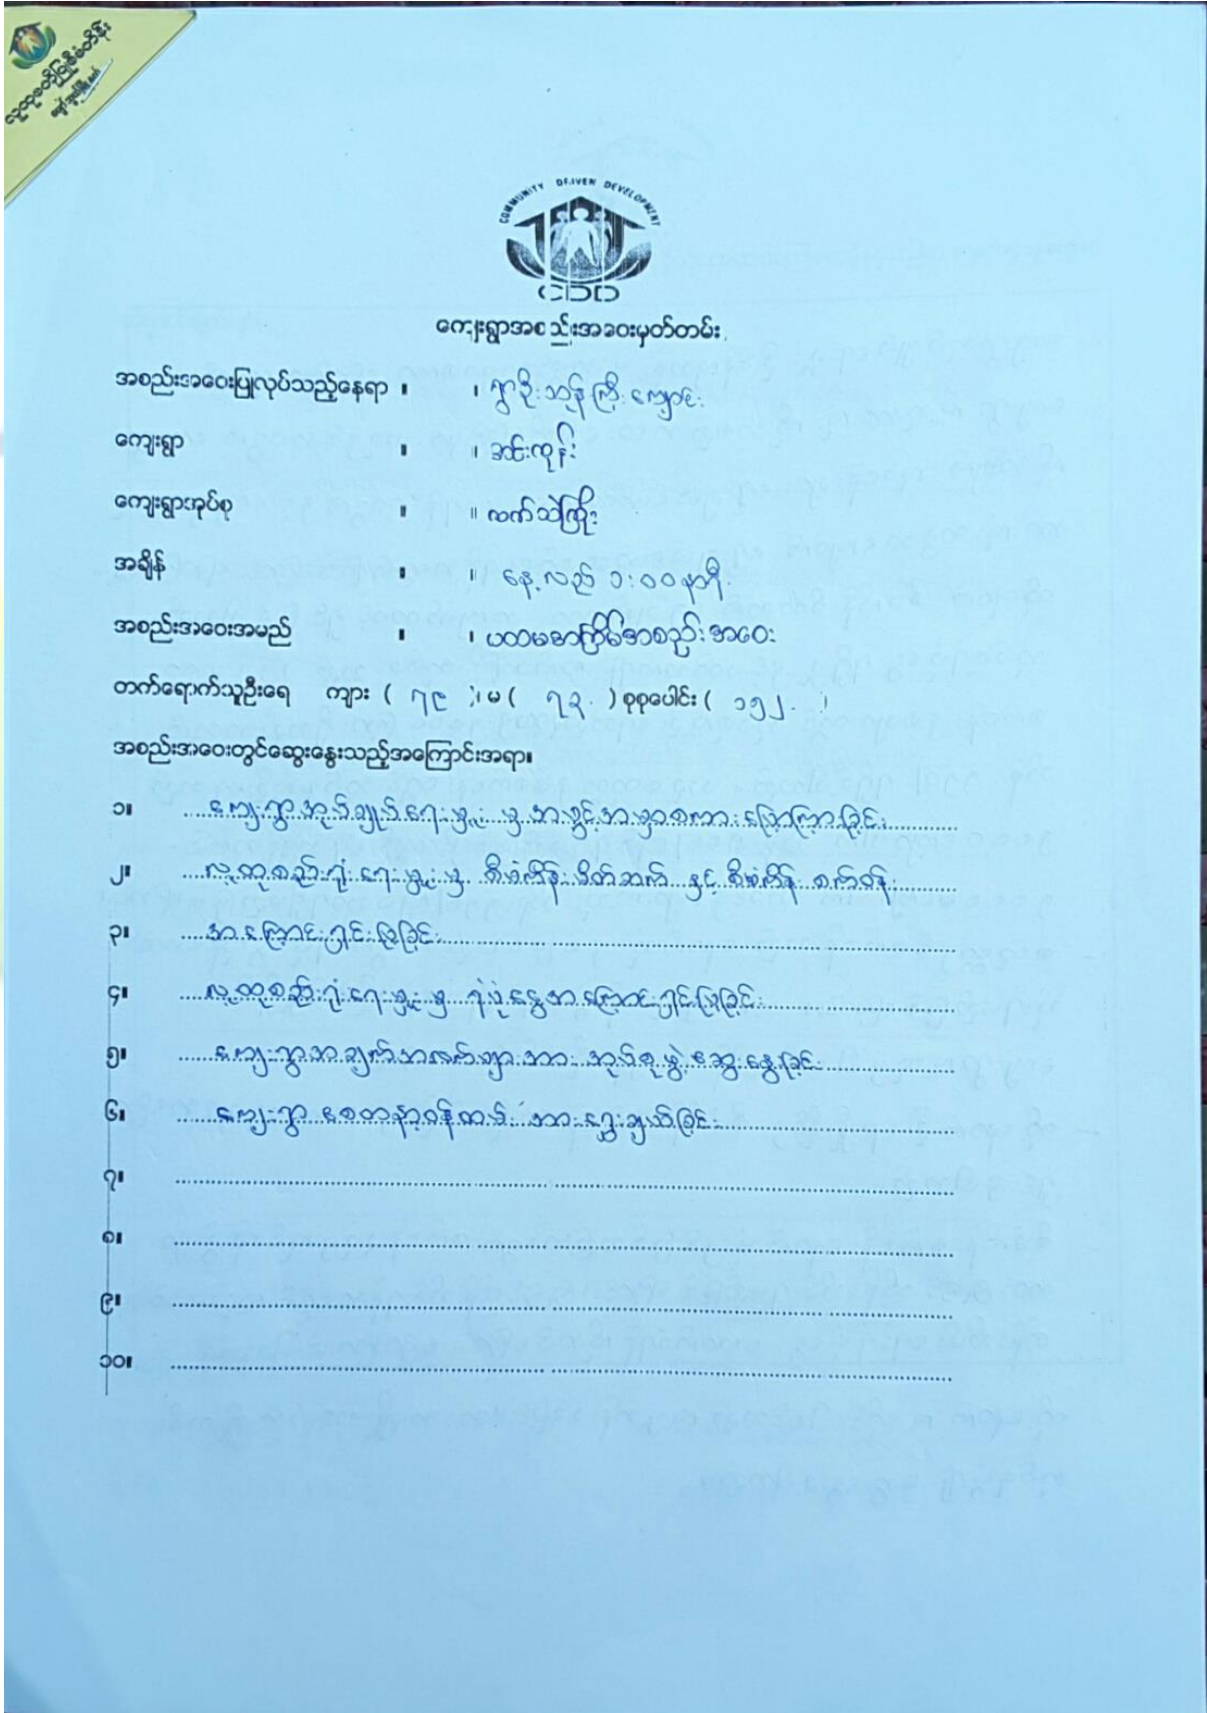 လူထုဗဟိုပြုစီမံကိန်း
COMMUNITY DRIVEN DEVELOPMENT
CDD
ကျေးရွာအစည်းအဝေးမှတ်တမ်း
အစည်းအဝေးပြုလုပ်သည့်နေရာ ။ ။ ရွာဦးဘုန်းကြီးကျောင်း
ကျေးရွာ ။ ။ အင်းကုန်း
ကျေးရွာအုပ်စု ။ ။ လက်သဲကြိုး
အချိန် ။ ။ နေ့လည် ၁:၀၀ နာရီ
အစည်းအဝေးအမည် ။ ။ ပထမအကြိမ်အစည်းအဝေး
တက်ရောက်သူဦးရေ ကျား ( ၇၉ )၊ မ ( ၇၃ ) စုစုပေါင်း ( ၁၅၂ )
အစည်းအဝေးတွင်ဆွေးနွေးသည့်အကြောင်းအရာ။
၁။ ကျေးရွာအုပ်ချုပ်ရေးမှူးမှ အဖွင့်အမှာစကားပြောကြားခြင်း
၂။ လူထုစည်းရုံးရေးမှူးမှ စီမံကိန်းမိတ်ဆက် နှင့် စီမံကိန်း စက်ဝန်း
၃။ အကြောင်းရှင်းပြခြင်း
၄။ လူထုစည်းရုံးရေးမှူးမှ ရံပုံငွေအကြောင်းရှင်းပြခြင်း
၅။ ကျေးရွာအချက်အလက်များအား အုပ်စုဖွဲ့ဆွေးနွေးခြင်း
၆။ ကျေးရွာစေတနာ့ဝန်ထမ်းအား ရွေးချယ်ခြင်း
၇။
၈။
၉။
၁၀။